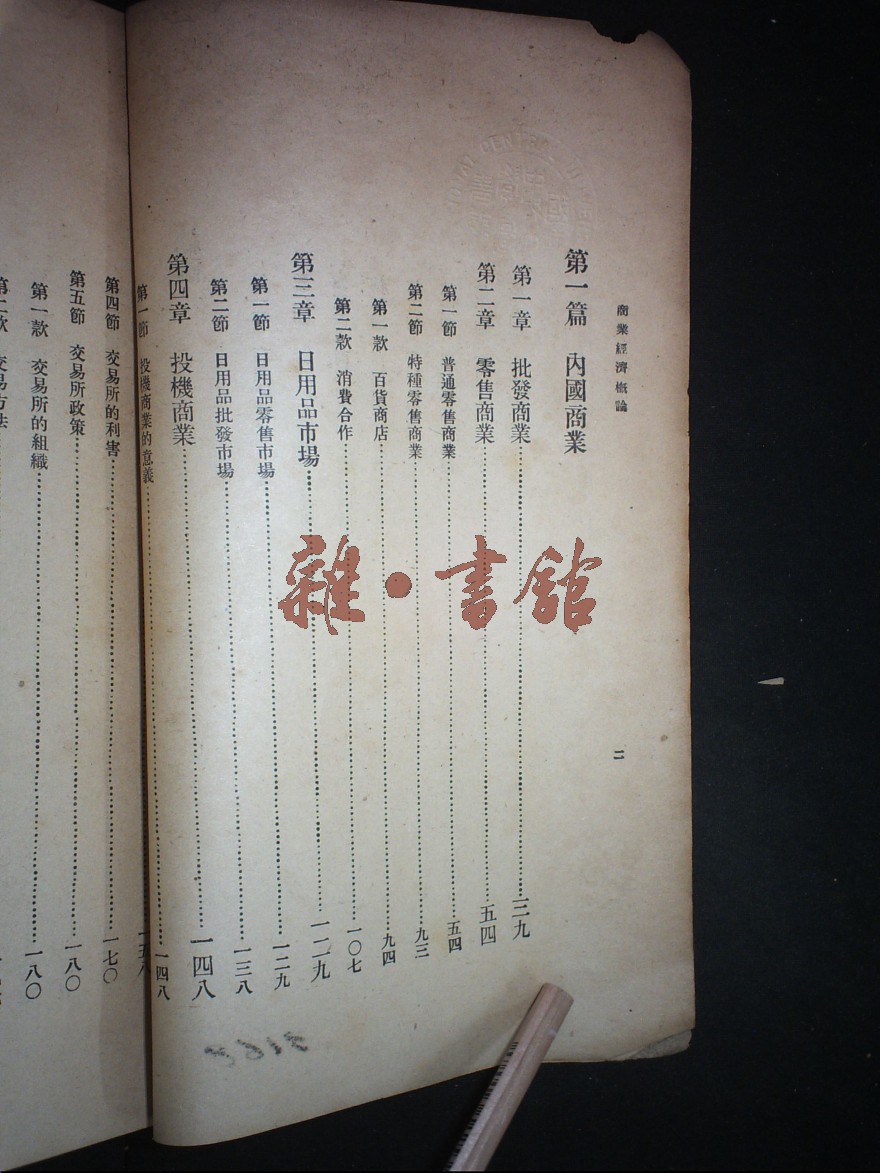 商業經濟概論
二
第一篇 內國商業
第一章 批發商業 三九
第二章 零售商業 五四
第一節 普通零售商業 五四
第二節 特種零售商業 九三
第一款 百貨商店 九四
第二款 消費合作 一〇七
第三章 日用品市場 一二九
第一節 日用品零售市場 一二九
第二節 日用品批發市場 一三八
第四章 投機商業 一四八
第一節 投機商業的意義 一四八
一五八
第四節 交易所的利害 一七〇
第五節 交易所政策 一八〇
第一款 交易所的組織 一八〇
第二款 交易方法
雜·書館